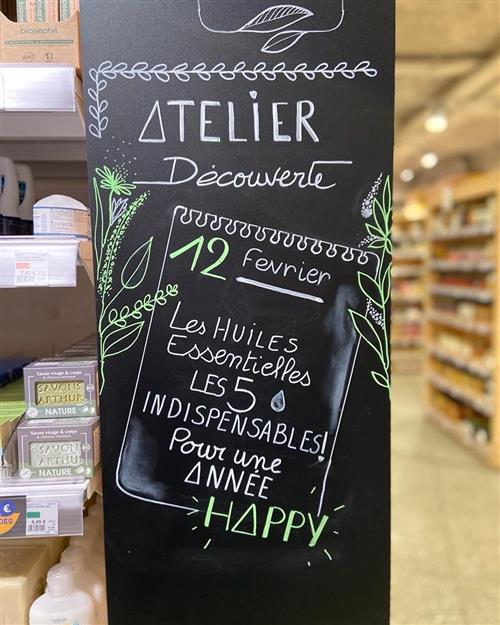 bioseptyl
ATELIER
Découverte
12 Fevrier
Les HUILES
Essentielles
LES 5
INDISPENSABLES!
Pour une
ANNÉE
HAPPY
Savon visage & corps
SAVONS
ARTHUR
NATURE
Savon visage & corps
SAVONS
ARTHUR
NATURE
4,45 €